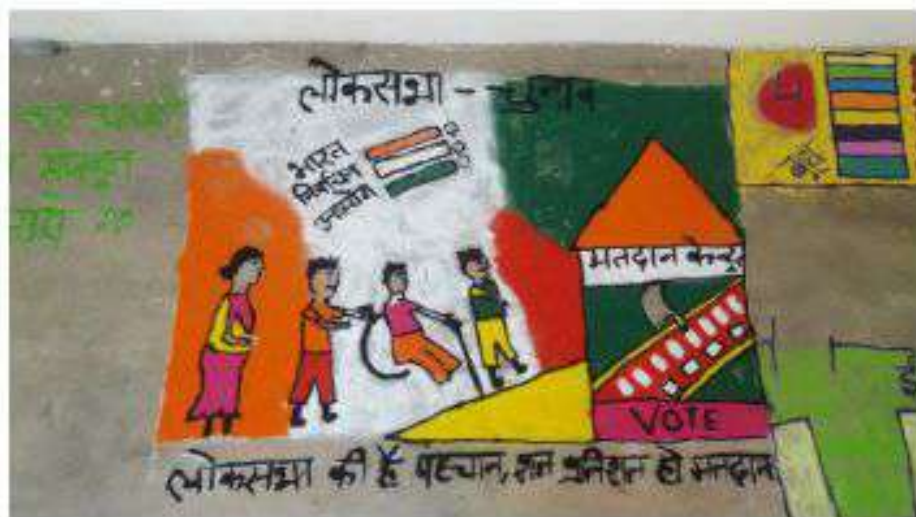 लोकसभा - चुनाव
भारत
निर्वाचन
आयोग
मतदान केन्द्र
VOTE
लोकसभा की है पहचान, शत प्रतिशत हो मतदान